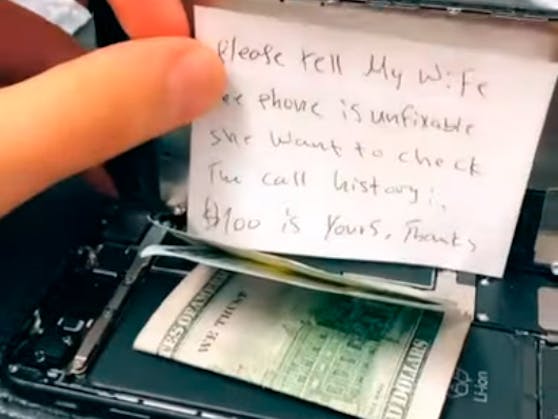 Please tell My Wife
phone is unfixable
she want to check
The call history:,
$100 is Yours, Thanks
ES OF AMERI
WE TRUST
DOLLARS
Li-ion